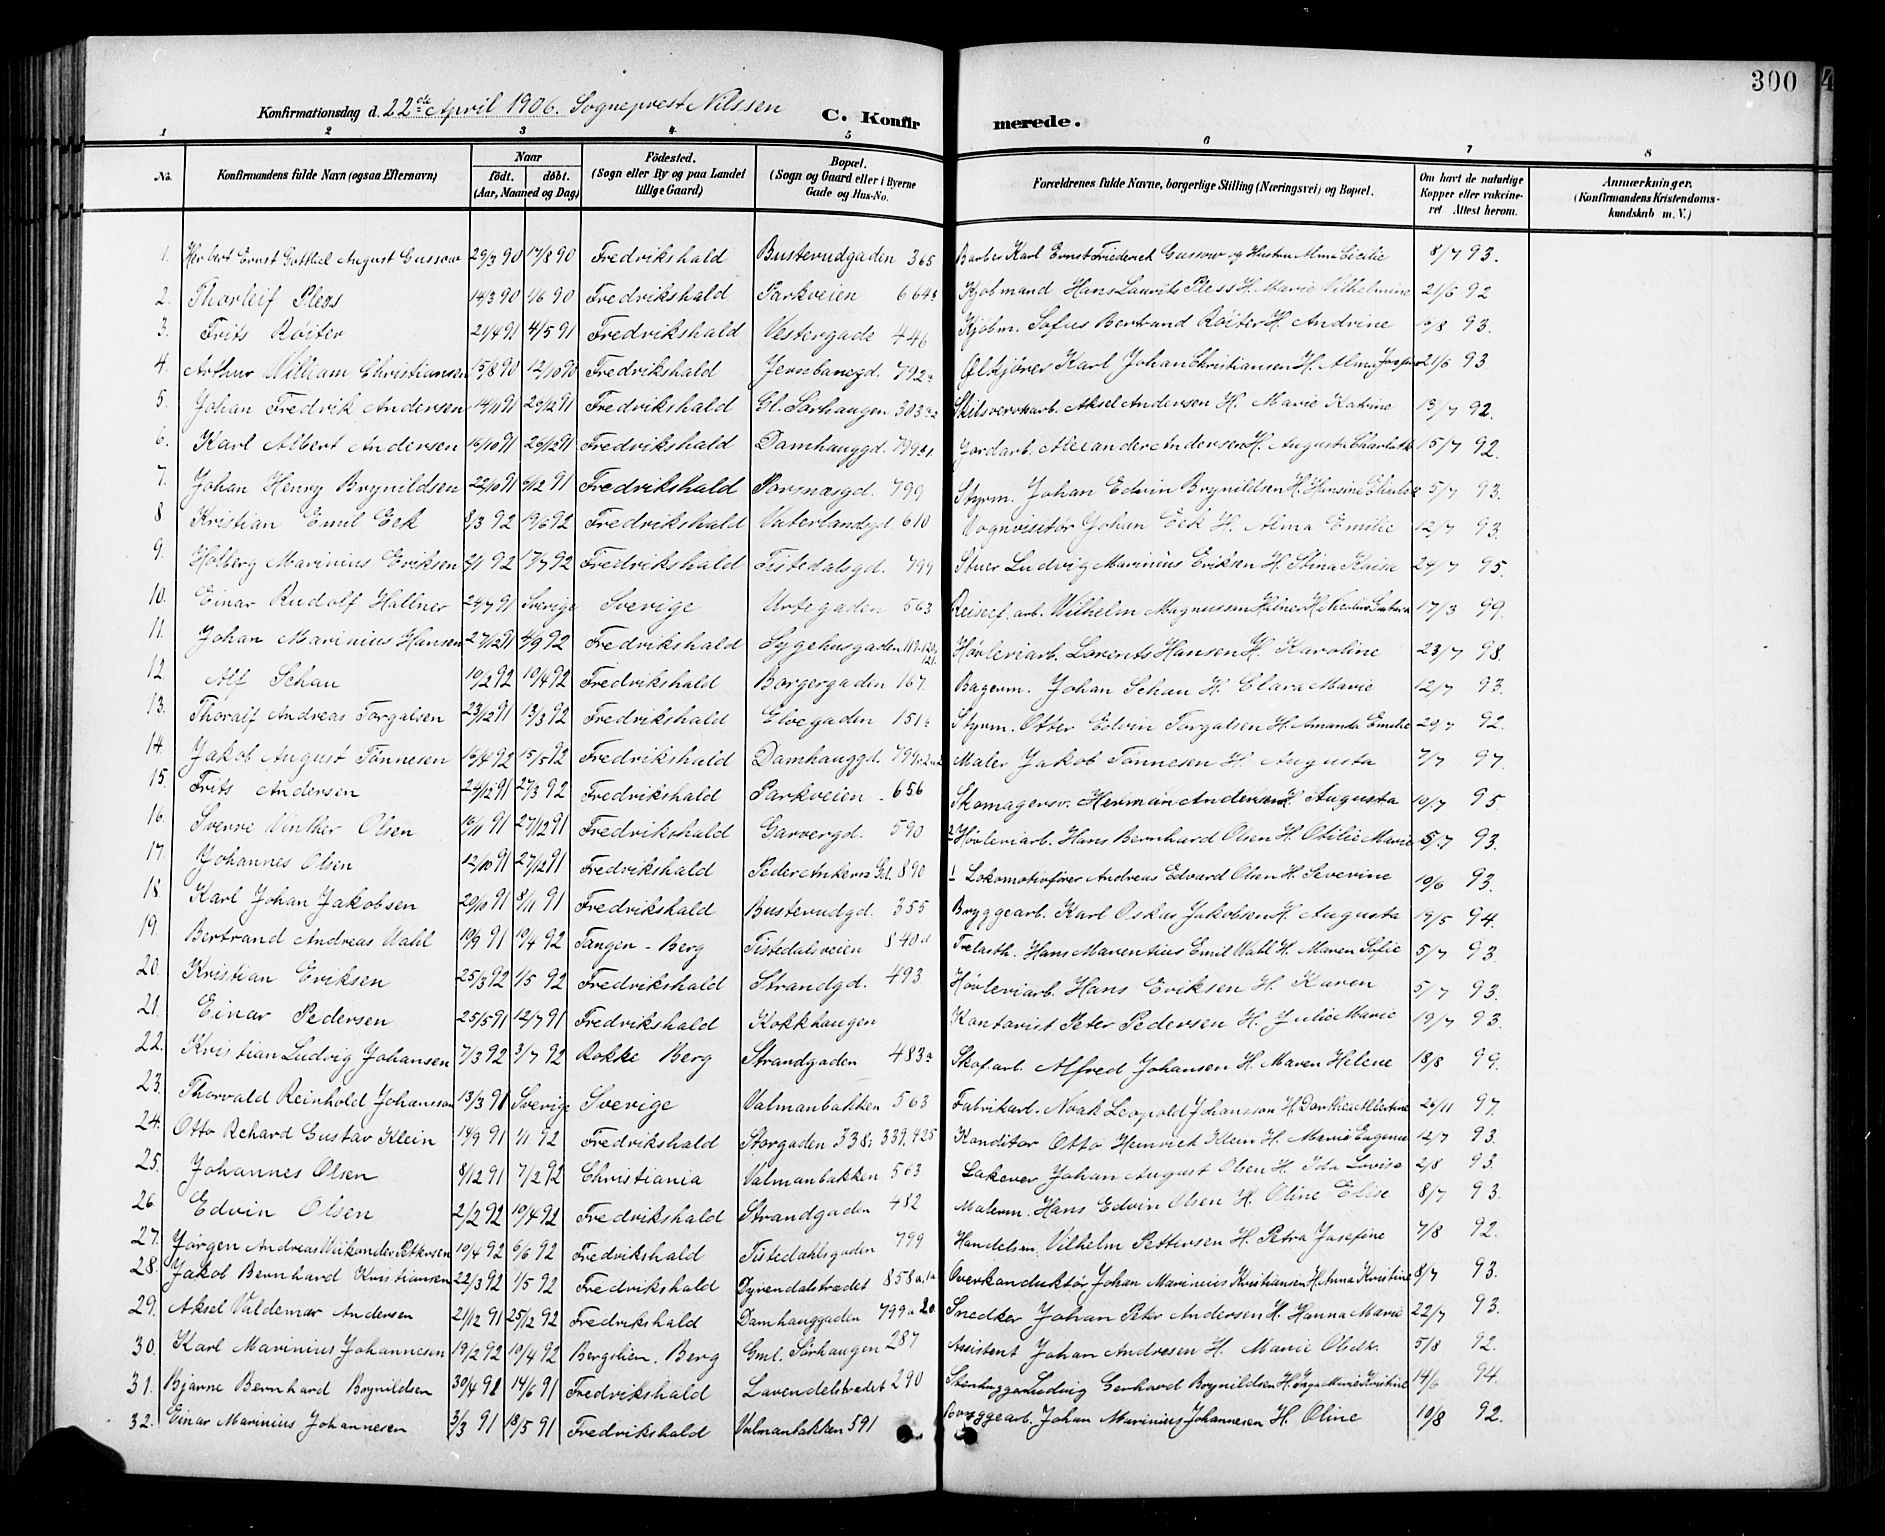 300
Konfirmationsdag d. 22de April 1906. Sogneprest Nilssen
C. Konfir merede.
1 2 3 4 5 6 7 8
No. Konfirmandens fulde Navn (ogsaa Efternavn) Naar født. døbt. (Aar, Maaned og Dag) Födested. (Sogn eller By og paa Landet tillige Gaard) Bopæl. (Sogn og Gaard eller i Byerne Gade og Hus-No. Forældrenes fulde Navne, borgerlige Stilling (Næringsvei) og Bopæl. Om havt de naturlige Kopper eller vakcineret Attest herom. Anmærkninger. (Konfirmandens Kristendomskundskab m. V.)
1. Herbert Ernst Gottliel August Gussow 29/3 90 17/8 90 Fredrikshald Busterudgaden 365 Barber Karl Ernst Friederek Gussow og Hustru Alma Cecilie 8/7 93.
2. Thorleif Pless 14/3 90 1/6 90 Fredrikshald Parkveien 664a Kjøbmand Hans Laurits Pless H. Marie Vilhelmine 21/6 92
3. Frits Røiter 21/4 91 4/5 91 Fredrikshald Vestergade 446 Kjøbm. Sofus Bertrand Røiter H. Andrine 93.
4. Arthur William Christiansen 15/8 90 12/10 90 Fredrikshald Jernbanegd. 792a Ølkjører Karl Johan Christiansen H. Alma Josefine 21/6 93.
5. Johan Fredrik Andersen 14/11 91 26/12 91 Fredrikshald Gl. Sørhaugen 303 Aksel Andersen H. Marie Katrine 13/7 92.
6. Karl Albert Andersen 16/10 91 26/12 91 Fredrikshald Damhauggd. 799 Jordarb. Alexander Andersen H. Augusta Charlotte 15/7 92.
7. Johan Henry Brynildsen 22/10 91 6/12 91 Fredrikshald Porsnæsgd. 799 Styrm. Johan Edvin Brynildsen H. Hansine 5/7 93.
8 Kristian Emil Eek 8/3 92 19/6 92 Fredrikshald Vaterlandsgd. 610 Vognvisitør Johan Eek H. Alma Emilie 12/7 93.
9. Holberg Marinius Eriksen 2/1 92 17/7 92 Fredrikshald Tistedalsgd. 799 Stuer Ludvig Marinius Eriksen H. Stina Kaisa 24/7 95.
10. Einar Rudolf Hallner 24/7 91 Sverige Sverige Urtegaden 563 arb. Wilhelm Magnussen 17/3 99.
11. Johan Marinius Hansen 27/12 91 4/9 92 Fredrikshald Sygehusgaden 119-120, 121. Høvleriarb. Lorents Hansen H. Karoline 23/7 98.
12. Alf Schau 10/2 92 10/4 92 Fredrikshald Borgergaden 167. Bagerm. Johan Schau H. Clara Marie 12/7 93.
13. Thoralf Andreas Torgalsen 23/12 91 13/3 92 Fredrikshald Elvegaden 151a Styrm. Otter Edvin Torgalsen H. Amanda Emilie 29/7 92.
14. Jakob August Tønnesen 16/4 92 15/5 92 Fredrikshald Damhauggd. 799 Maler Jakob Tønnesen H. Augusta 7/7 97.
15. Frits Andersen 24/12 91 27/3 92 Fredrikshald Parkveien 656 Skomagersv. Herman Andersen H. Augusta 10/7 95
16. Sverre Vinther Olsen 16/11 91 27/12 91 Fredrikshald Garvergd. 590 2 Høvleriarb. Hans Bernhard Olsen H. Otilie Marie 5/7 93.
17. Johannes Olsen 12/10 91 27/12 91 Fredrikshald Peder Ankers Gd. 890 1 Lokomotivfører Andreas Edvard Olsen H. Severine 19/6 93.
18. Karl Johan Jakobsen 29/10 91 8/11 91 Fredrikshald Busterudgd. 355 Bryggearb. Karl Oskar Jakobsen H. Augusta 19/5 94.
19. Bertrand Andreas Wahl 19/9 91 10/4 92 Tangen - Berg Tistedalsveien 840d Trelasth. Hans Marentius Emil Wahl H. Maren Sofie 5/7 93.
20. Kristian Eriksen 25/3 92 1/5 92 Fredrikshald Strandgd. 493 Høvleriarb. Hans Eriksen H. Karen 5/7 93.
21. Einar Pedersen 25/5 91 12/7 91 Fredrikshald Kokkhaugen Kontorist Peter Pedersen H. Julie Marie 19/7 93.
22. Kristian Ludvig Johansen 7/3 92 3/7 92 Rokke Berg Strandgaden 483a Skof.arb. Alfred Johansen H. Maren Helene 18/8 99.
23. Thorvald Reinhold Johansson 13/3 91 Sverige Sverige Valmanbakken 563 Fabrikarb. Noak Leopold Johansson H. Dorthea Albertine 26/11 97.
24. Otto Rehard Gustav Klein 14/9 91 1/1 92 Fredrikshald Storgaden 338, 339, 425 Konditor Otto Heinrich Klein H. Marie Eugenie 12/7 93.
25. Johannes Olsen 8/12 91 7/2 92 Christiania Valmanbakken 563 Lakerer Johan August Olsen H. Ida Lovise 2/8 93.
26. Edvin Olsen 2/2 92 10/4 92 Fredrikshald Strandgaden 482 Malerm. Hans Edvin Olsen H. Oline Elise 8/7 93.
27. Jørgen Andreas Wiikander Pettersen 10/4 92 6/6 92 Fredrikshald Tistedahlsgaden 799 Handelsm. Vilhelm Pettersen H. Petra Josefine 7/8 92.
28. Jakob Bernhard Kristiansen 22/3 92 1/5 92 Fredrikshald Dyrendalstrædet 858a,1a Overkonduktør Johan Marinius Kristiansen H. Anna Kristine 8/7 93.
29. Aksel Valdemar Andersen 21/12 91 25/12 92 Fredrikshald Damhauggaden 799a 20 Snedker Johan Peter Andersen H. Hanna Marie 22/7 93.
30. Karl Marinius Johannesen 19/2 92 10/4 92 Bergslien. Berg Gml. Sørhaugen 287 Assistent Johan Andresen H. Marie Olsdtr. 5/8 92.
31. Bjarne Bernhard Brynildsen 30/4 91 14/6 91 Fredrikshald Lavendelstrædet 290 Stenhugger Ludvig Gerhard Brynildsen H. Inga Marie Kristine 14/6 94.
32. Einar Marinius Johannesen 3/3 91 18/5 91 Fredrikshald Valmanbakken 591 Bryggearb. Johan Marinius Johannesen H. Oline 10/8 92.